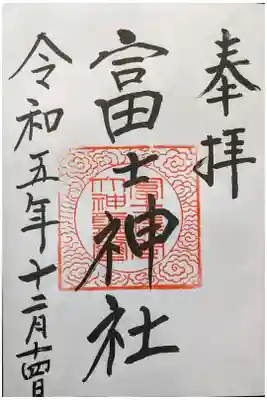 奉拝
富士神社
令和五年十二月十四日